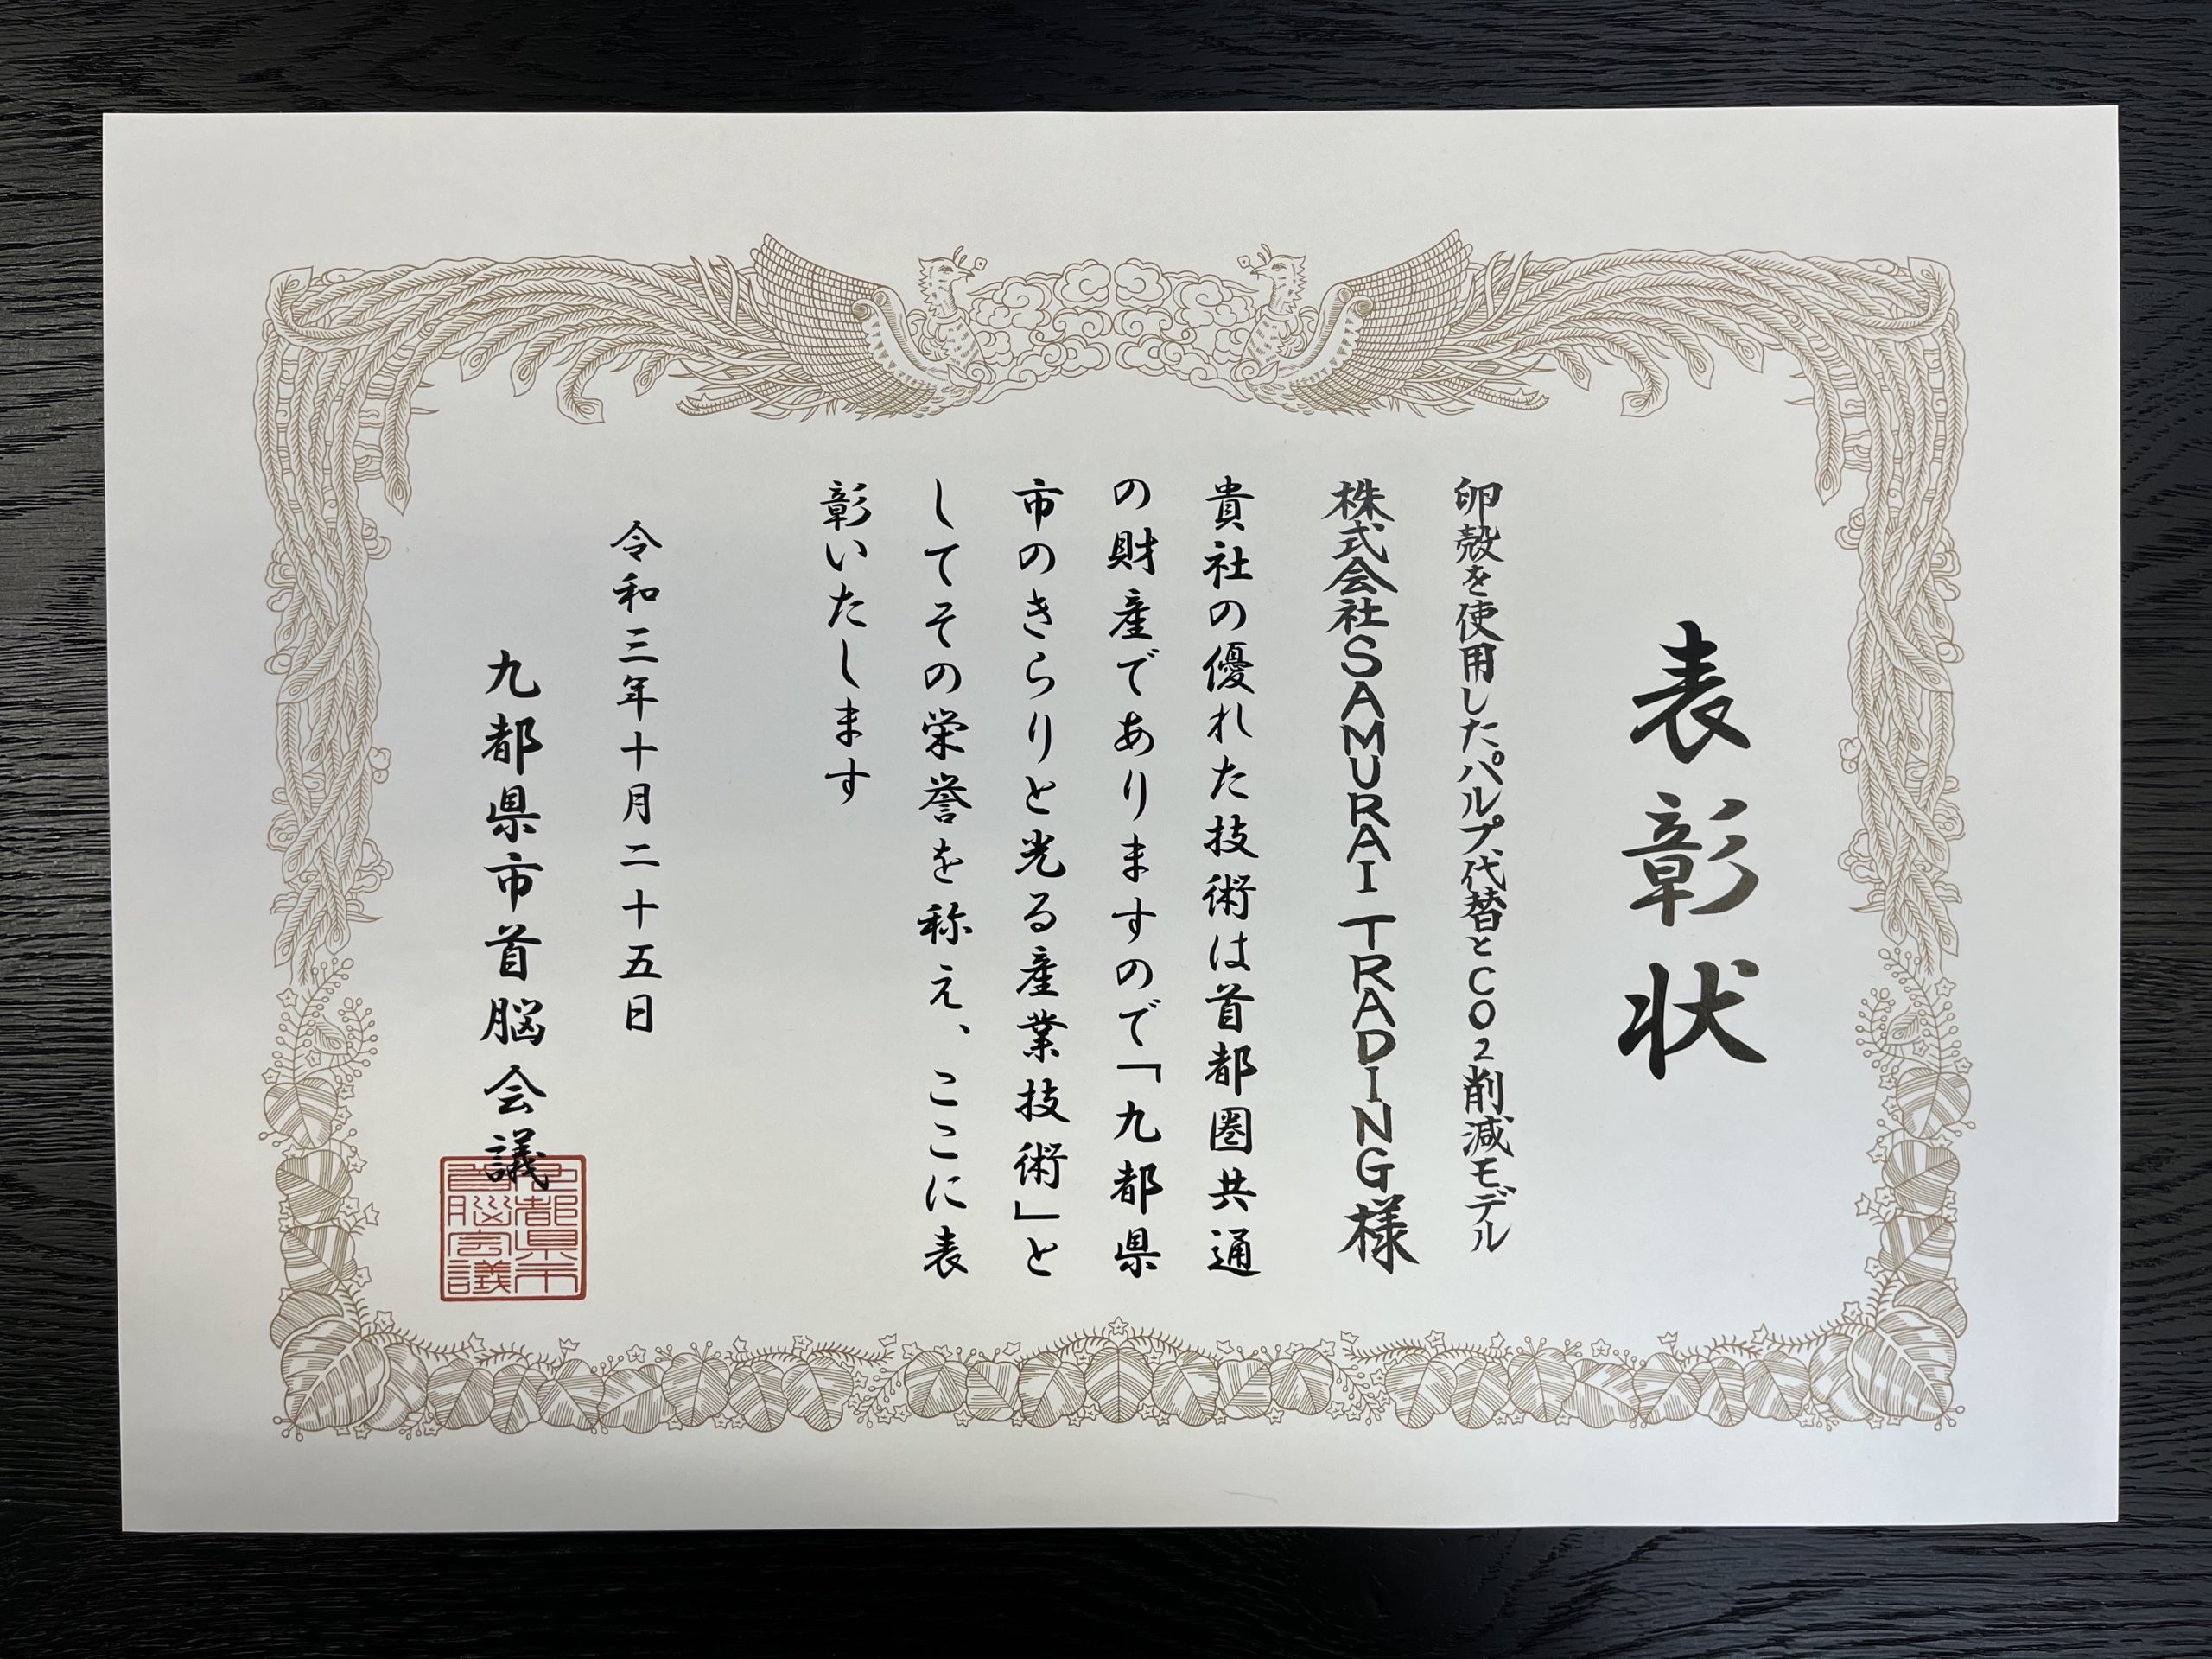 表彰状
卵殻を使用したパルプ代替とCO2削減モデル
株式会社SAMURAI TRADING様
貴社の優れた技術は首都圏共通
の財産でありますので「九都県
市のきらりと光る産業技術」と
してその栄誉を称え、ここに表
彰いたします
令和三年十月二十五日
九都県市首脳会議
九都県市
首脳会議